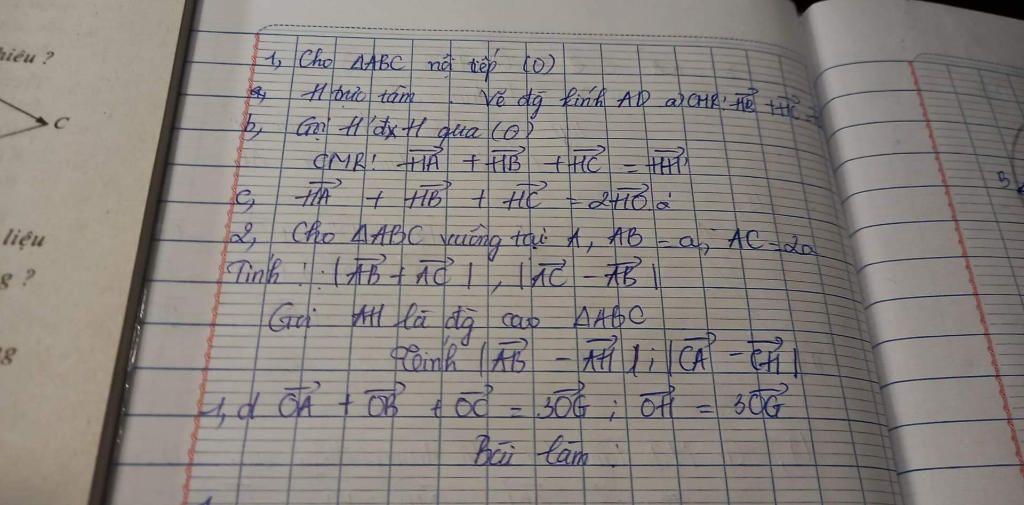 hiêu ?
C
liệu
g ?
1, Cho ΔABC nội tiếp (O)
a, H trực tâm. Vẽ đg kính AD a) CMR: HB + HC =
b, Gọi H' đx H qua (O)
CMR: HA + HB + HC = HH'
c, HA + HB + HC = 2HO
2, Cho ΔABC vuông tại A, AB = a, AC = 2a
Tính : |AB + AC| , |AC - AB|
Gọi AH là đg cao ΔABC
Tính |AB - AH| ; |CA - CH|
1, d OA + OB + OC = 3OG ; OH = 3OG
Bài làm :
B